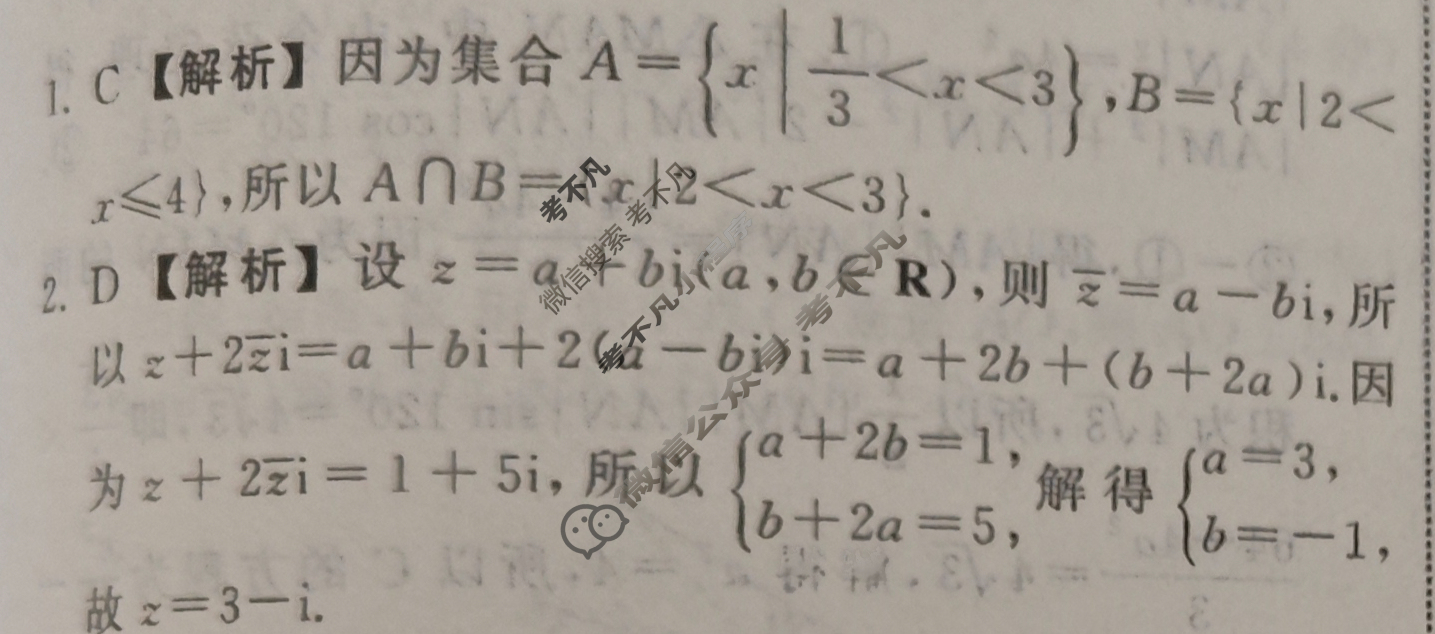 1. C【解析】因为集合 A={x | 1/3<x<3},B={x|2<
x≤4},所以 A∩B={x|2<x<3}.
2. D【解析】设 z=a+bi(a,b∈R),则 z̅=a-bi,所
以 z+2z̅i=a+bi+2(a-bi)i=a+2b+(b+2a)i.因
为 z+2z̅i=1+5i,所以 {a+2b=1, b+2a=5, 解得 {a=3, b=-1,
故 z=3-i.
考不凡
微信搜索 考不凡
考不凡小程序
微信公众号 考不凡